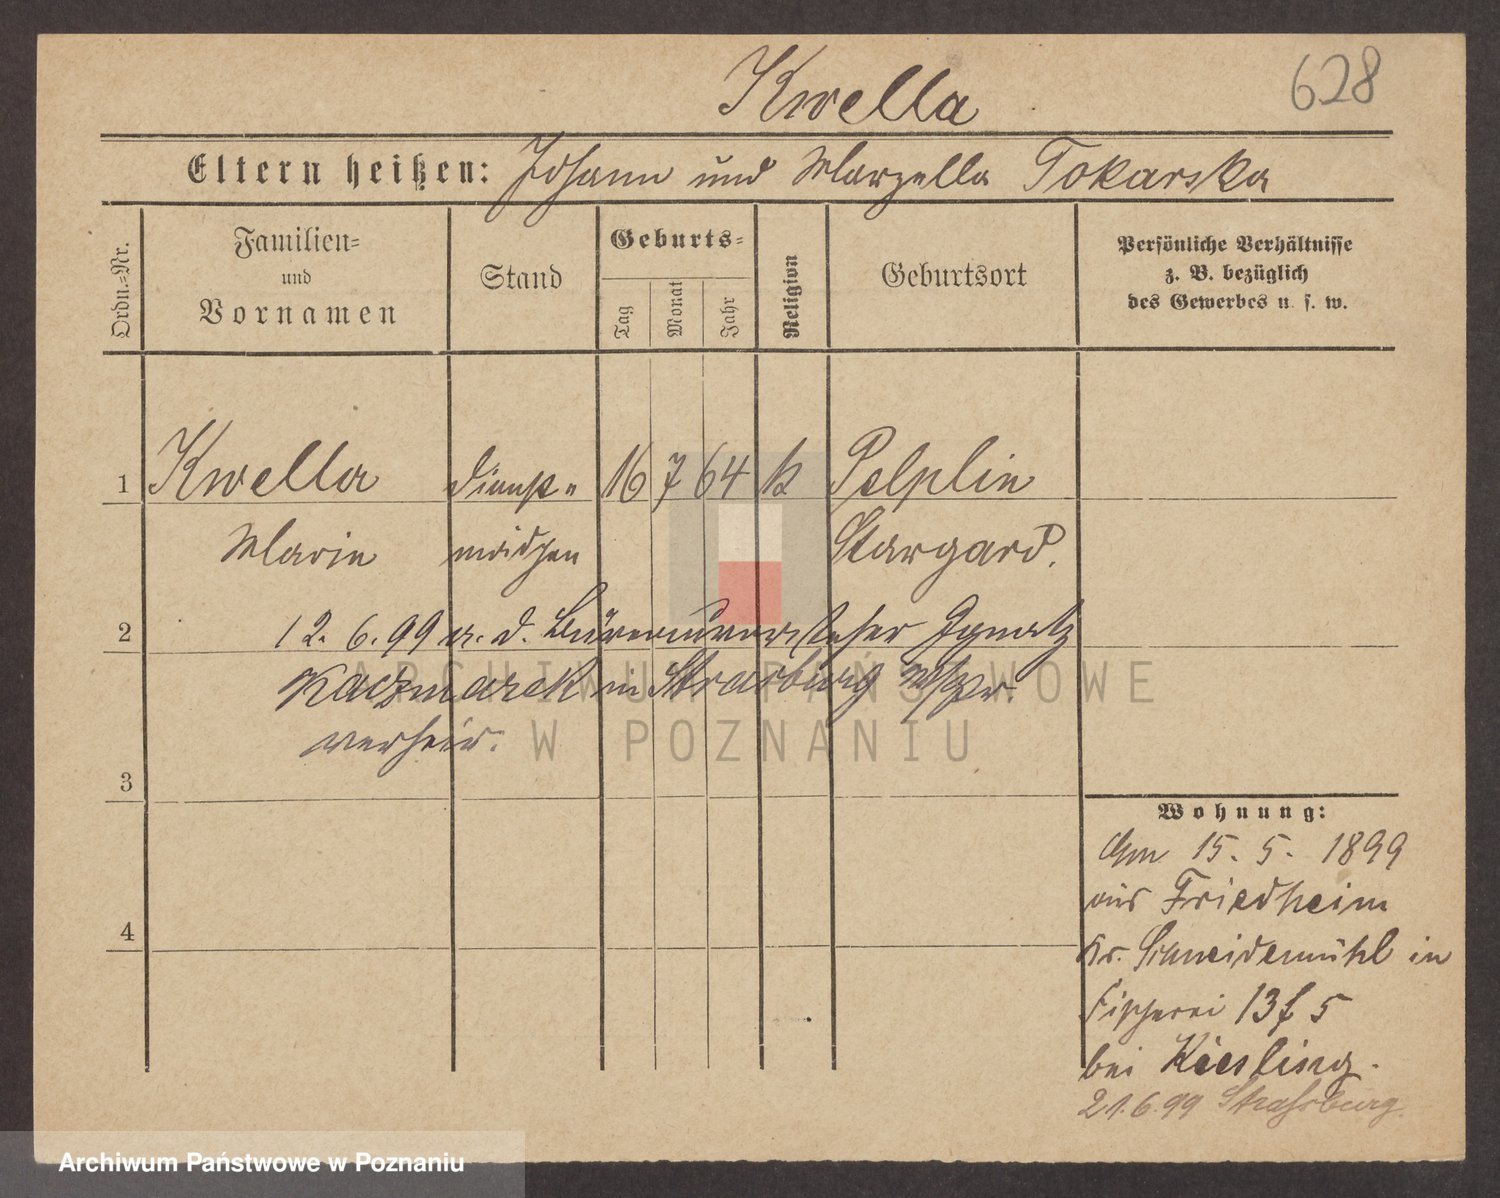 Kwella
628
Eltern heißen: Johann und Marzella Tokarska
Ordn.=Nr.
Familien=
und
Vornamen
Stand
Geburts=
Tag
Monat
Jahr
Religion
Geburtsort
Persönliche Verhältnisse
z. B. bezüglich
des Gewerbes u. s. w.
1 Kwella Dienst= 16 7 64 k Pelplin
Marie mädchen Stargard.
2 12. 6. 99 a. d. Büreauvorsteher Ignatz
Kaczmarek in Strasburg W/Pr.
verheir.
3
4
Wohnung:
Am 15. 5. 1899
aus Friedheim
Kr. Schneidemühl in
Fischerei 13f 5
bei Kiesling.
21.6.99 Straßburg.
ARCHIWUM PAŃSTWOWE
W POZNANIU
Archiwum Państwowe w Poznaniu